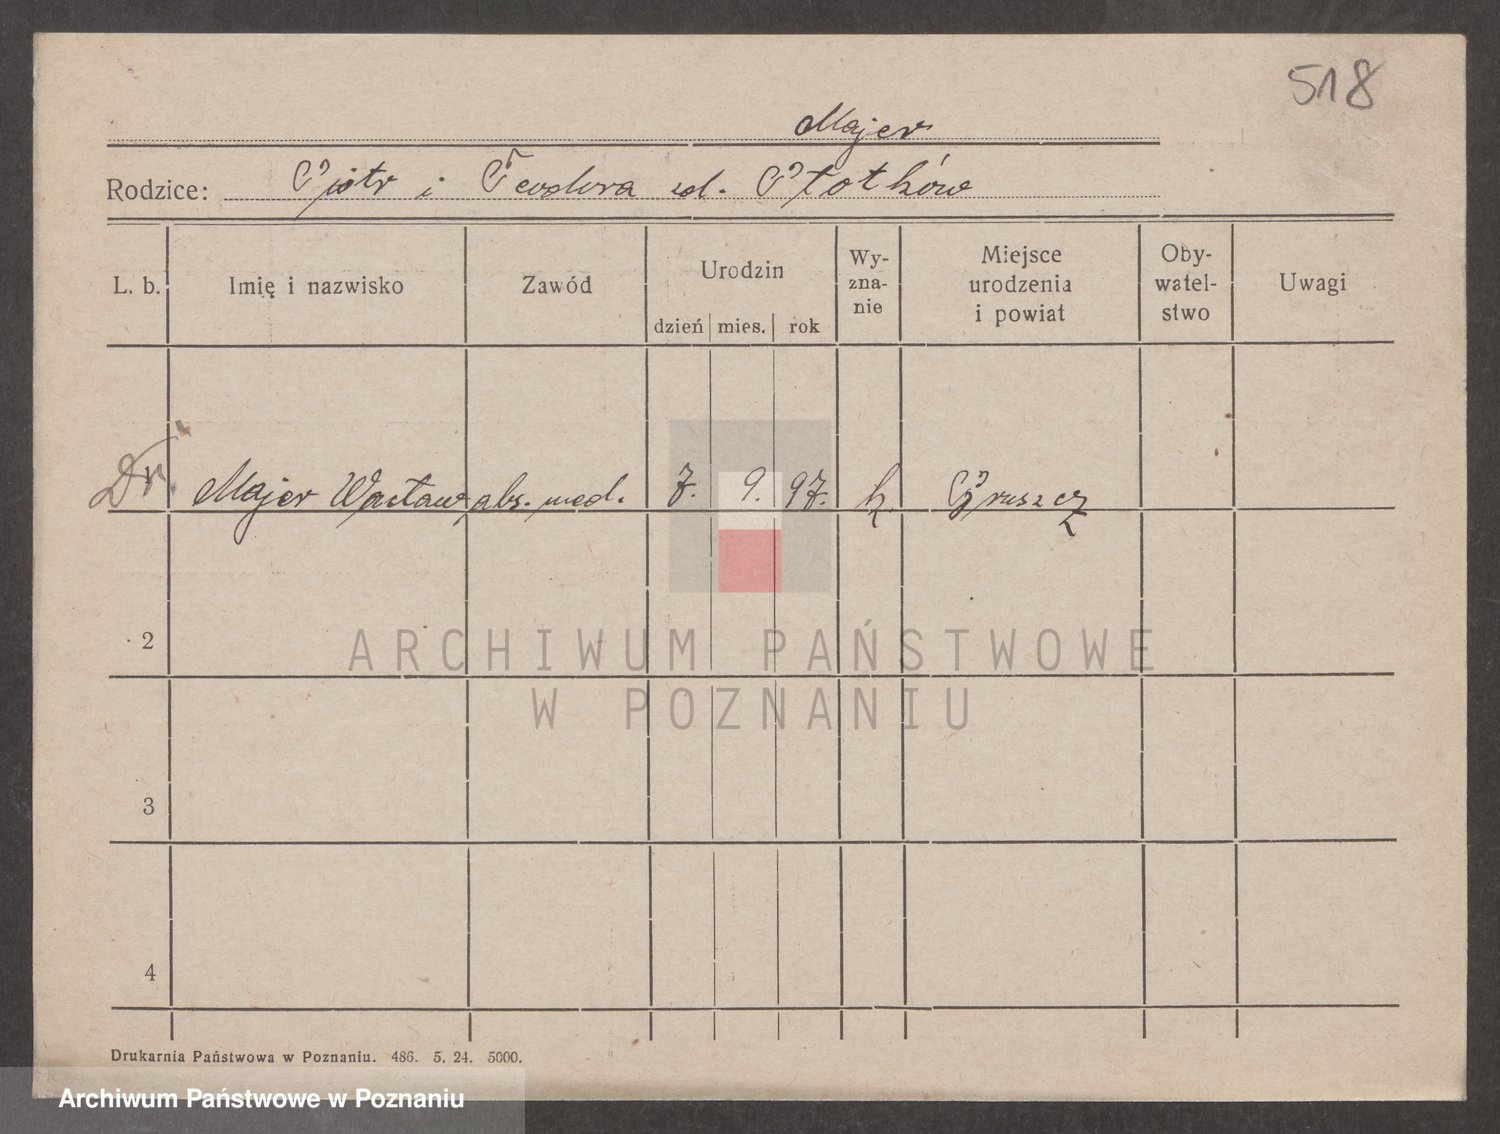 518
Majer
Rodzice: Piotr i Teodora zd. Płotków
L. b. Imię i nazwisko Zawód Urodzin dzień mies. rok Wy-zna-nie Miejsce urodzenia i powiat Oby-watel-stwo Uwagi
Dr. Majer Wacław abs. med. 7. 9. 97. k Gruszcz
2
ARCHIWUM PAŃSTWOWE
W POZNANIU
3
4
Drukarnia Państwowa w Poznaniu. 486. 5. 24. 5000.
Archiwum Państwowe w Poznaniu